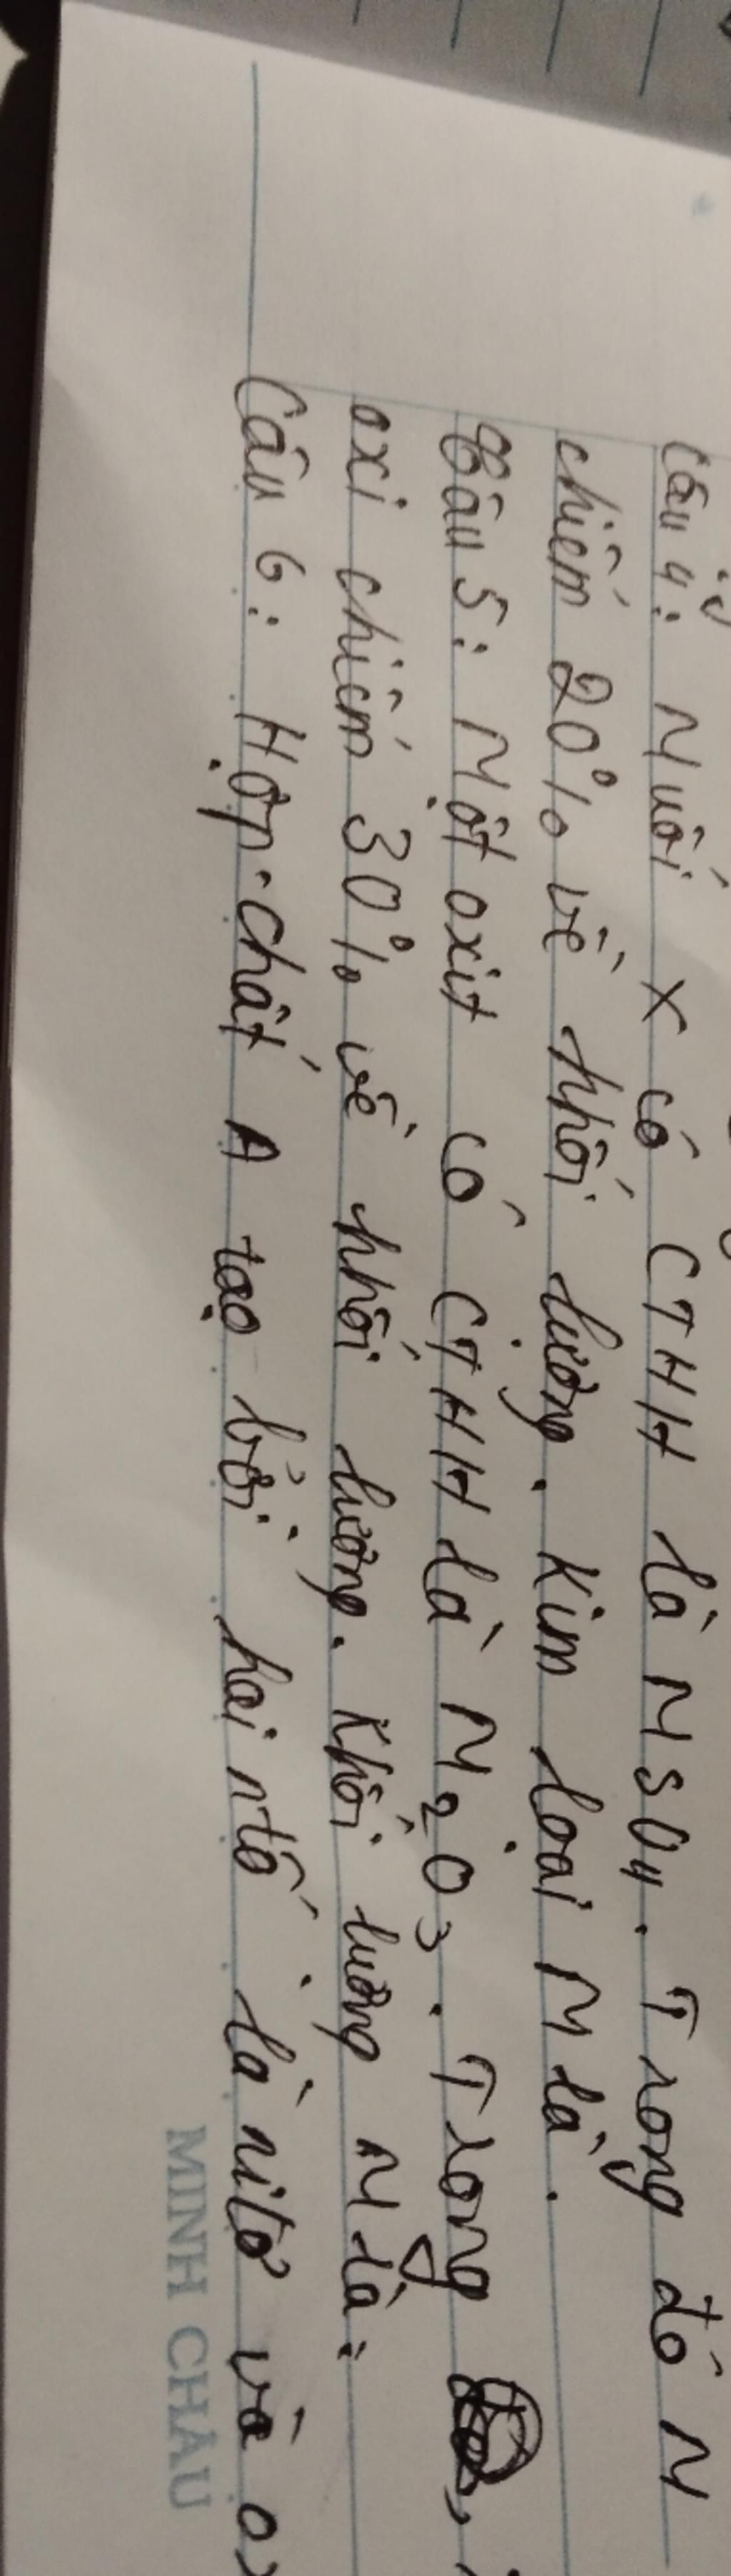 Câu 4: Muối X có CTHH là MSO4. Trong đó M
chiếm 20% về khối lượng. Kim loại M là.
Câu 5: Một oxit có CTHH là M2O3. Trong
oxi chiếm 30% về khối lượng. Khối lượng M là:
Câu 6: Hợp chất A tạo bởi hai ntố là nitơ và ox
MINH CHÂU